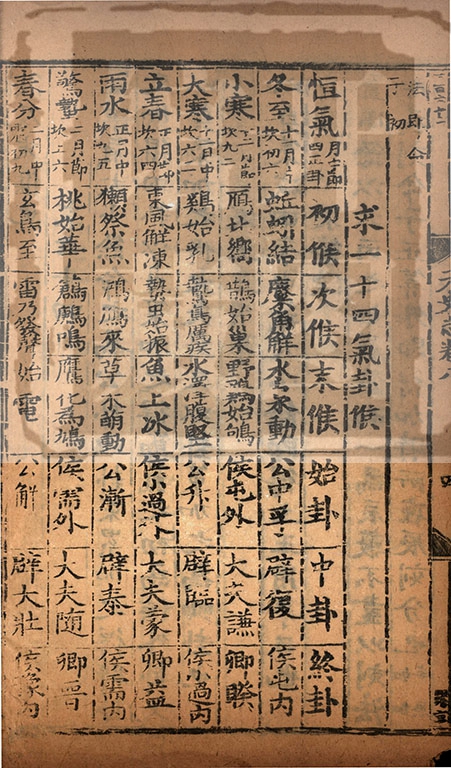 求二十四氣卦候
恒氣 月中節 四正卦 初候 次候 末候 始卦 中卦 終卦
冬至 十一月中 坎初六 蚯蚓結 麋角解 水泉動 公中孚 辟復 侯屯內
小寒 十二月節 坎九二 鴈北鄉 鵲始巢 野鷄始鴝 侯屯外 大夫謙 卿睽
大寒 十二月中 坎六三 鷄始乳 鷙鳥厲疾 水澤腹堅 公升 辟臨 侯小過內
立春 正月節 坎六四 東風解凍 蟄虫始振 魚上冰 侯小過外 大夫蒙 卿益
雨水 正月中 坎九五 獺祭魚 鴻鴈來 草木萌動 公漸 辟泰 侯需內
驚蟄 二月節 坎上六 桃始華 鶬鶊鳴 鷹化為鳩 侯需外 大夫随 卿晉
春分 二月中 震初九 玄鳥至 雷乃發聲 始電 公解 辟大壯 侯豫內